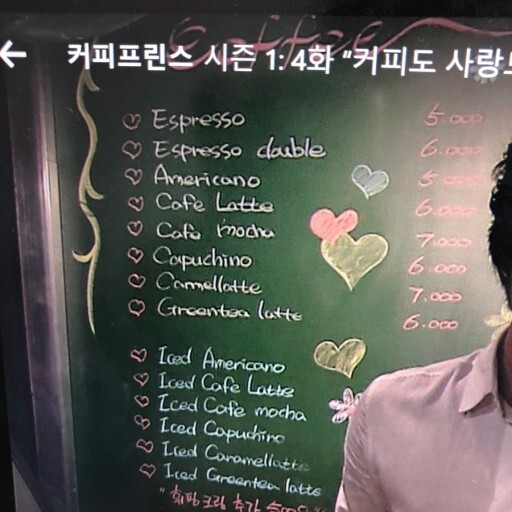 Coffee
커피프린스 시즌 1: 4화 "커피도 사랑
Espresso 5.000
Espresso dauble 6.000
Americano 5.000
Cafe Latte 6.000
Cafe mocha 7.000
Capuchino 6.000
Camellatte 7.000
Greentea latte 6.000
Iced Americano
Iced Cafe Latte
Iced Cafe mocha
Iced Capuchino
Iced Caramellatte
Iced Greentea latte
"휘핑크림 추가 500